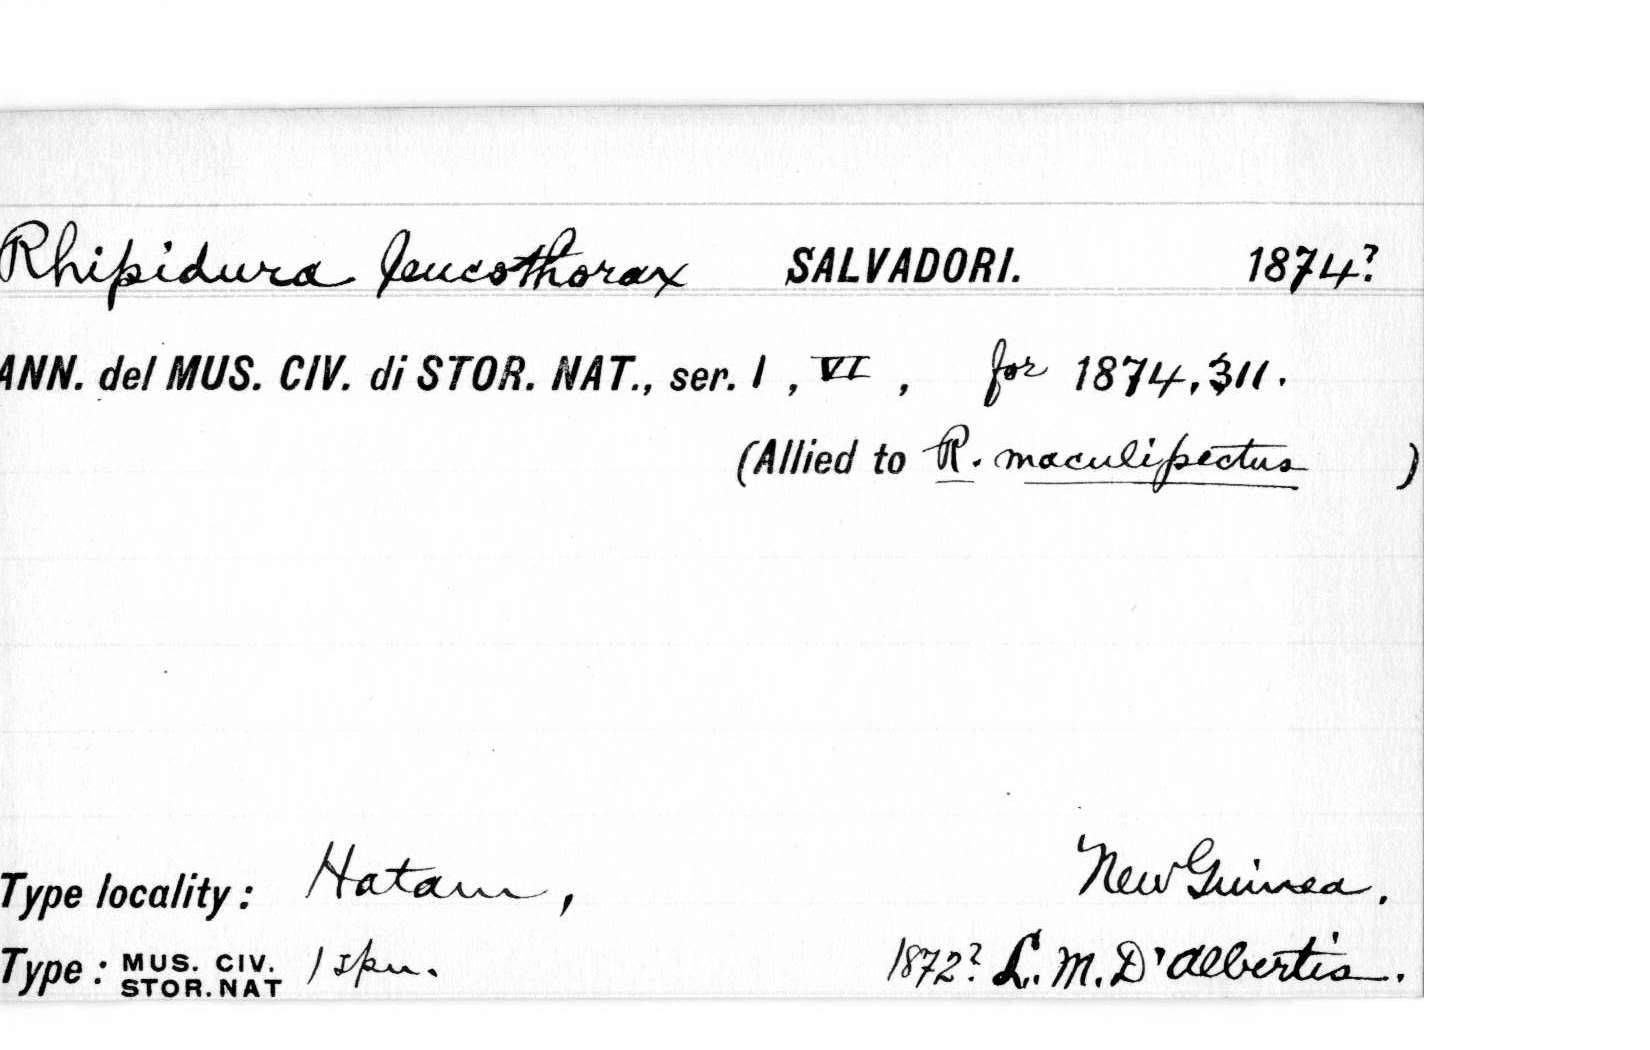 Rhipidura leucothorax SALVADORI. 1874?
ANN. del MUS. CIV. di STOR. NAT., ser. 1, VI, for 1874, 311.
(Allied to R. maculipectus )
Type locality: Hatam, New Guinea.
Type: MUS. CIV. STOR. NAT 1 spn. 1872? L. M. D'Albertis.